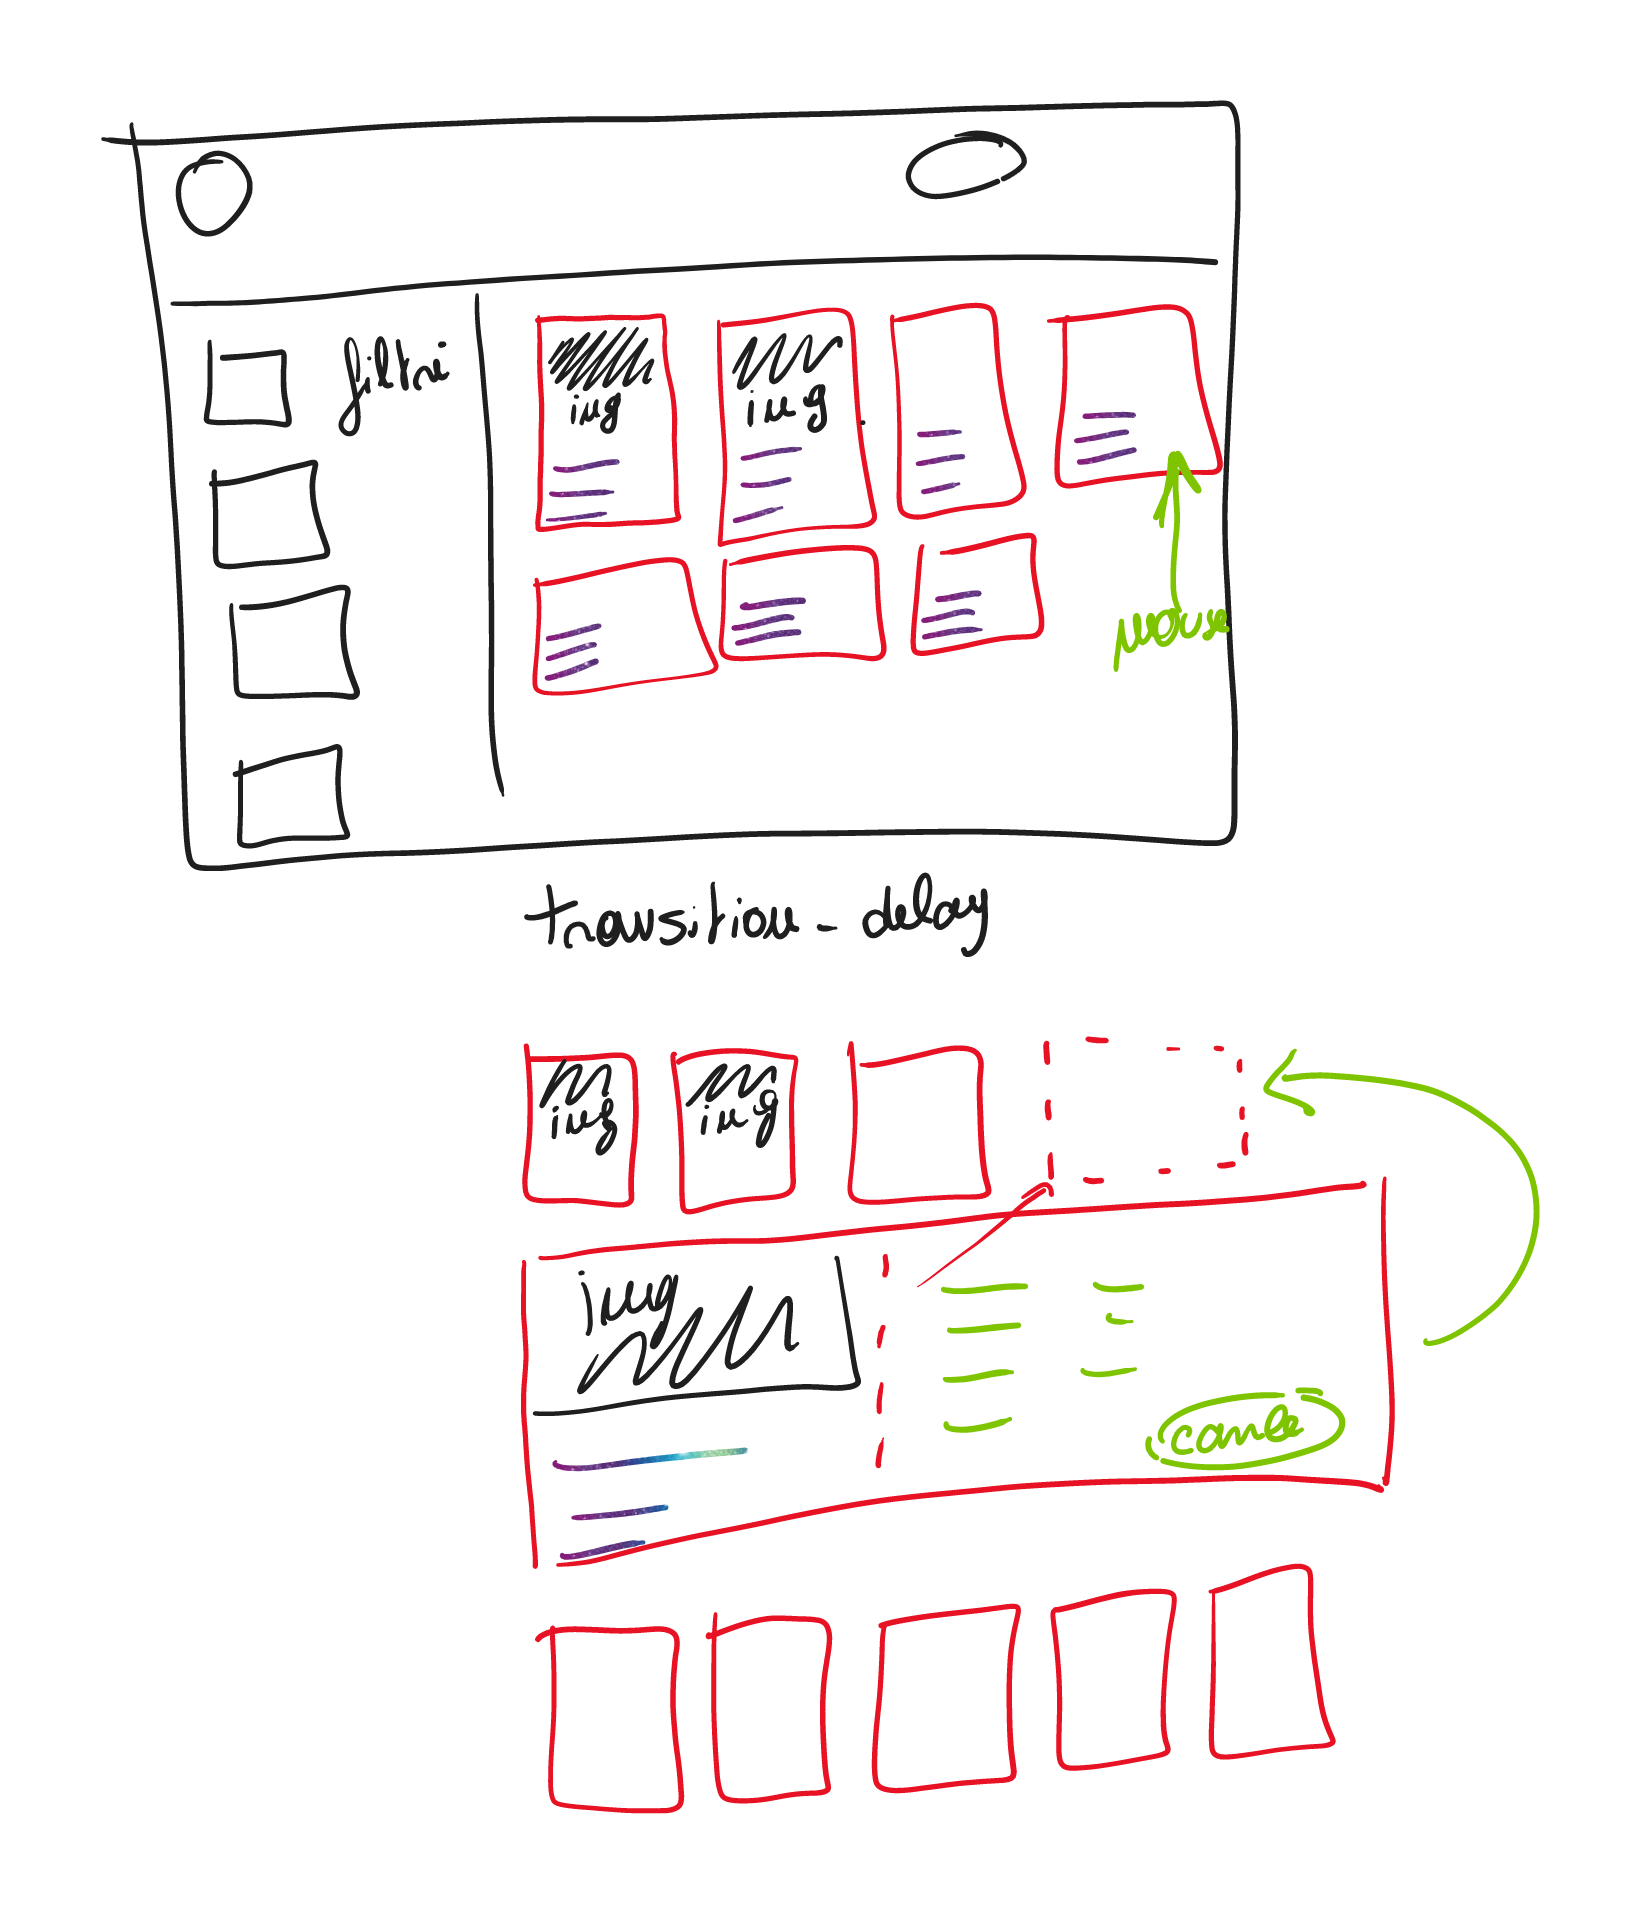 filtri
img
img
mouse
transition-delay
img
img
img